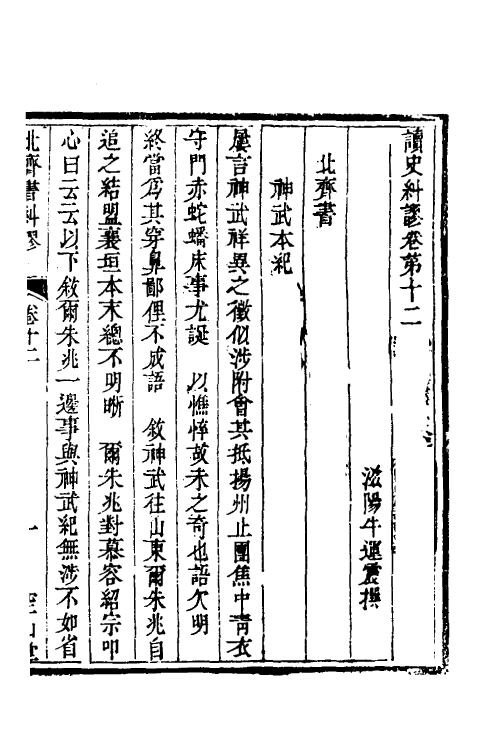 讀史糾謬卷第十二
滋陽牛運震撰
北齊書
神武本紀
屢言神武祥異之徵似涉附會其抵揚州止團焦中青衣
守門赤蛇蟠床事尤誕 以憔悴故未之奇也語欠明
終當爲其穿鼻鄙俚不成語 敘神武往山東爾朱兆自
追之結盟襄垣本末總不明晰 爾朱兆對慕容紹宗叩
心曰云云以下敘爾朱兆一邊事與神武紀無涉不如省
北齊書糾謬 卷十二 一 空山堂